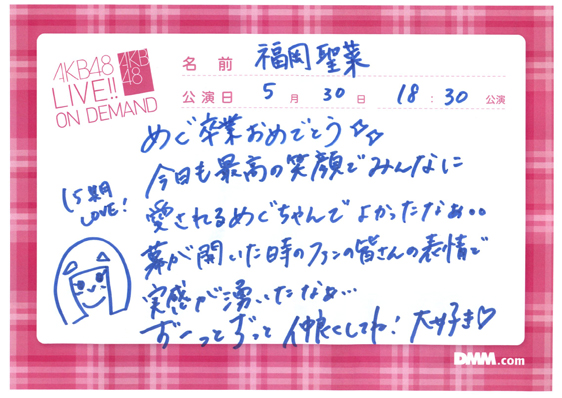 AKB48
LIVE!!
ON DEMAND
AKB
48
名 前 福岡聖菜
公演日 5 月 30 日 18 : 30 公演
めぐ卒業おめでとう☆☆
今日も最高の笑顔でみんなに
15期
LOVE!
愛されるめぐちゃんでよかったなぁ..
幕が開いた時のファンの皆さんの表情で
実感が湧いたなぁ…
ずーっとずっと仲良くしてね! 大好き♡
DMM.com